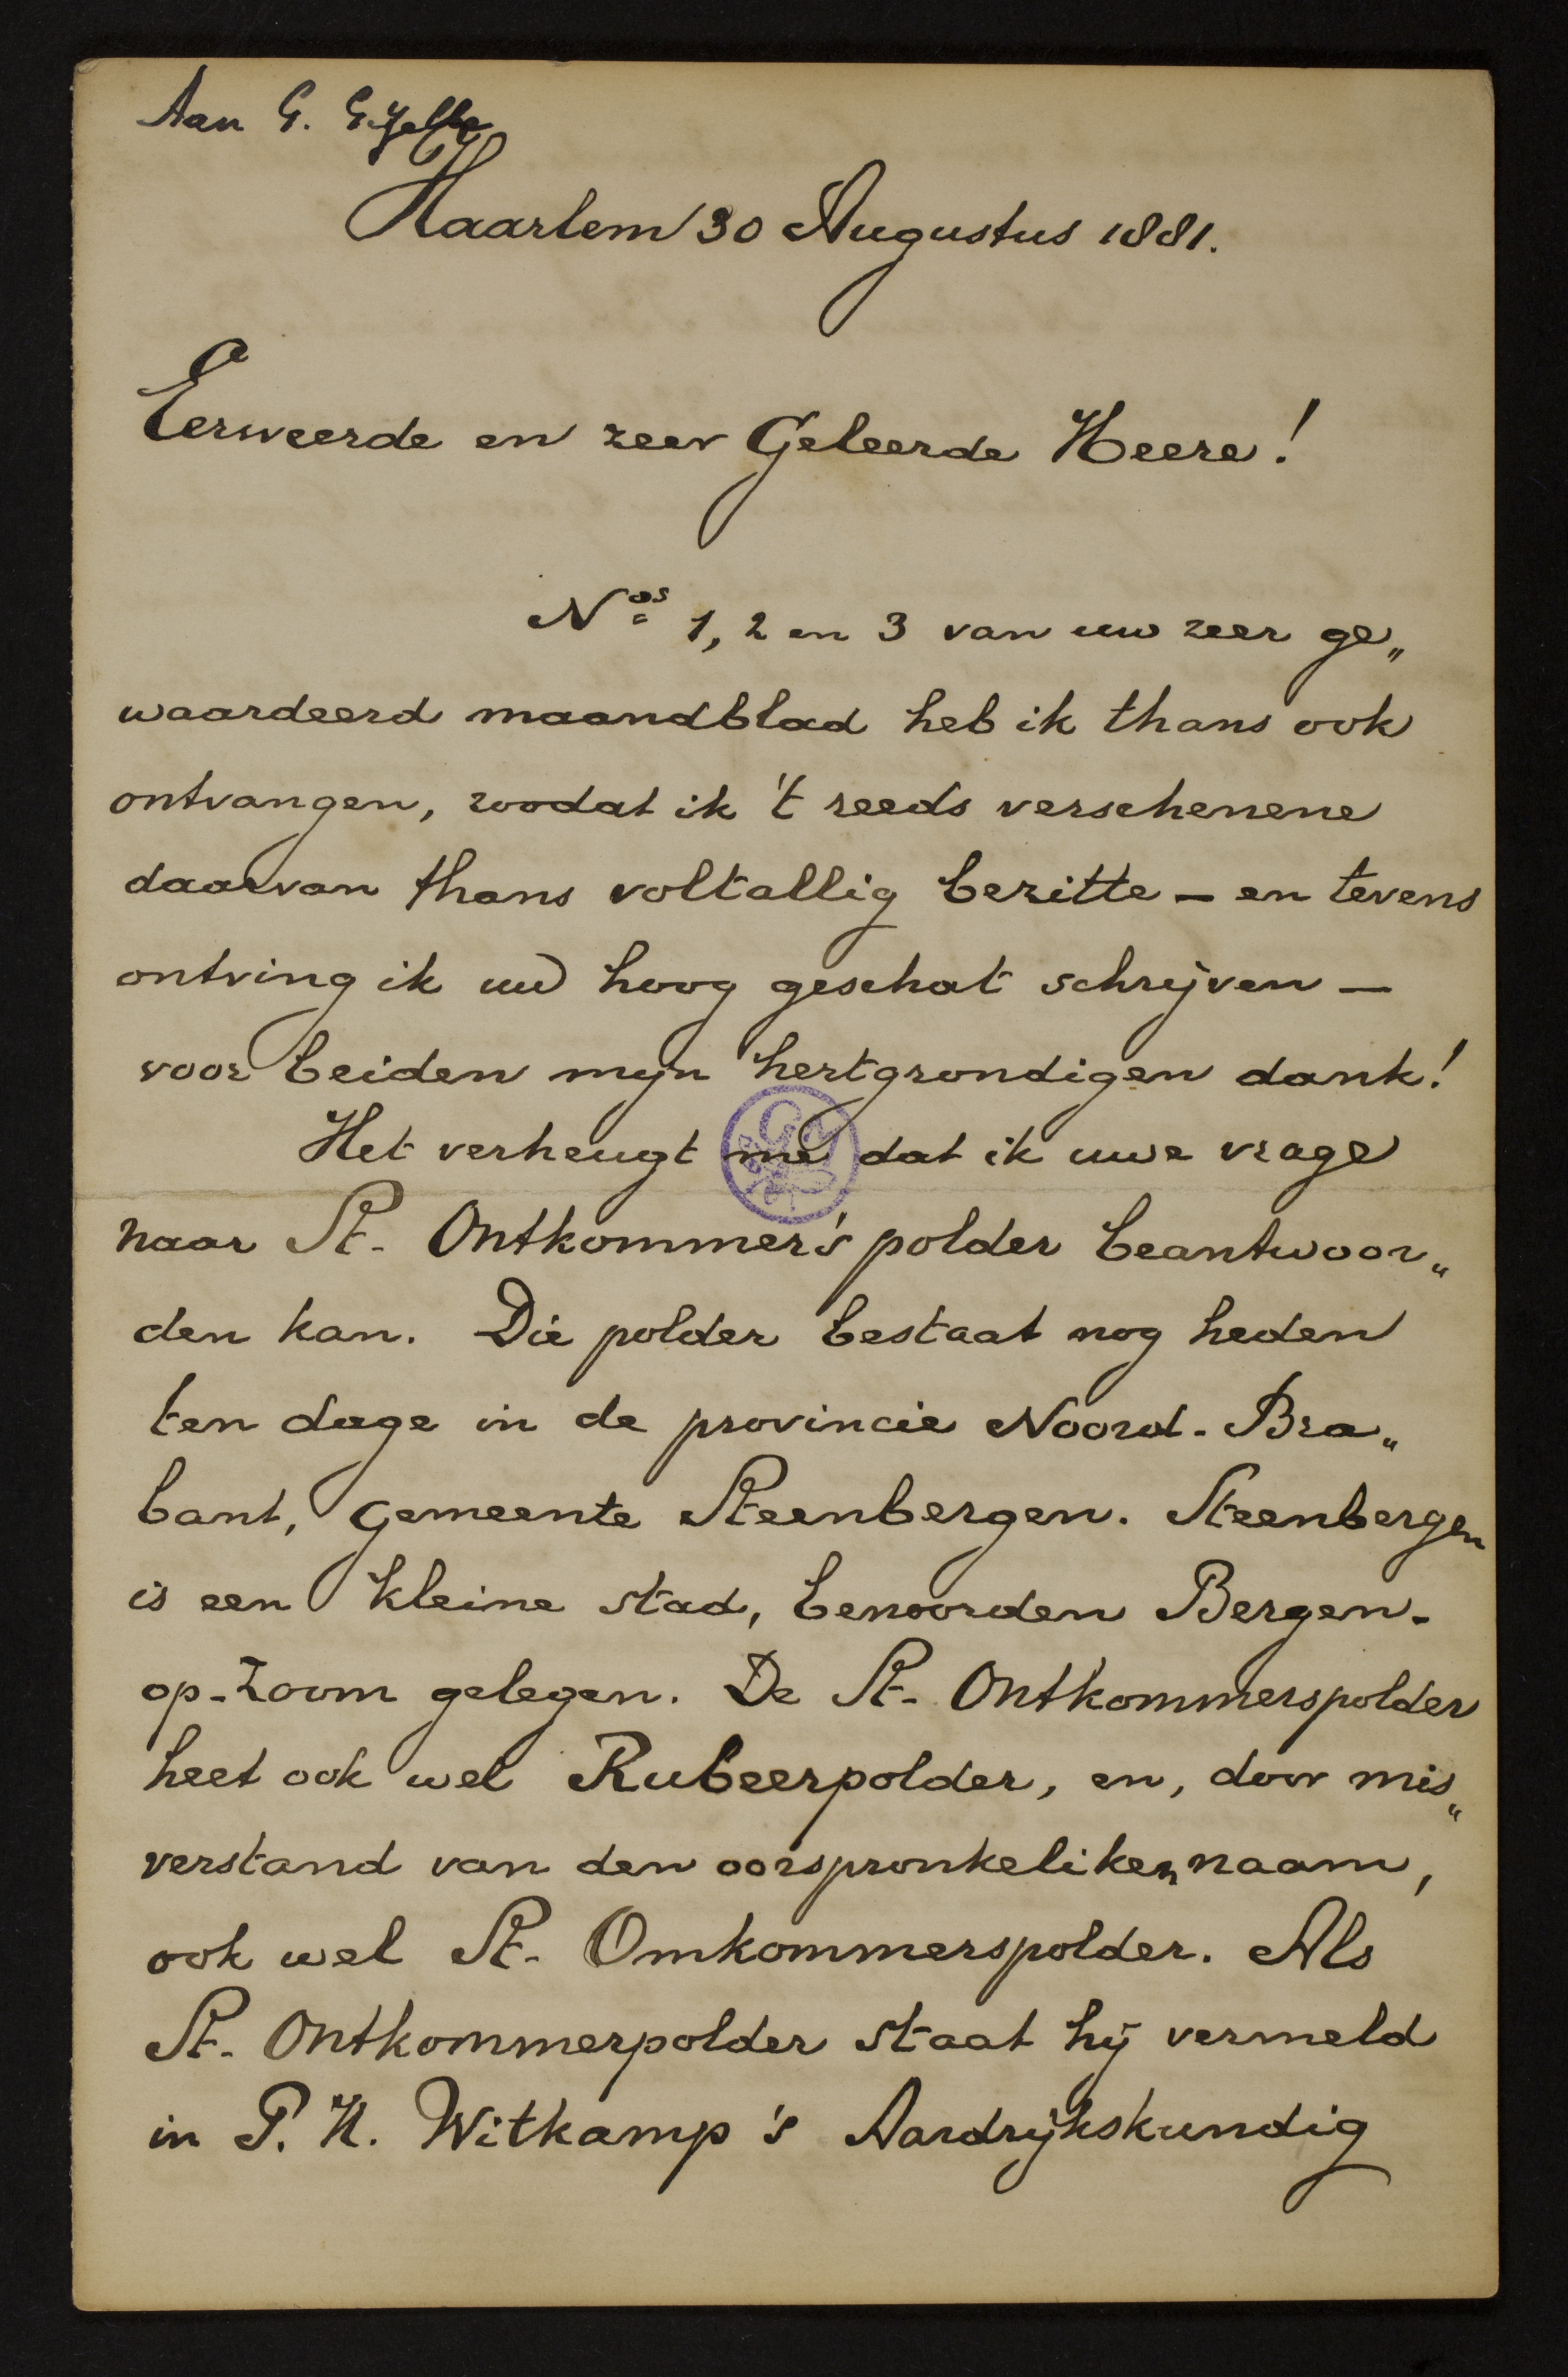 Aan G. Gezelle
Haarlem 30 Augustus 1881.
Eerweerde en zeer Geleerde Heere!
Nos 1, 2 en 3 van uw zeer ge„
waardeerd maandblad heb ik thans ook
ontvangen, zoodat ik 't reeds verschenene
daarvan thans voltallig bezitte – en tevens
ontving ik uw hoog geschat schrijven –
voor beiden mijn hertgrondigen dank!
Het verheugt me dat ik uwe vrage
naar St. Ontkommer's polder beantwoor„
den kan. Die polder bestaat nog heden
ten dage in de provincie Noord-Bra„
bant, gemeente Steenbergen. Steenbergen
is een kleine stad, benoorden Bergen-
op-Zoom gelegen. De St. Ontkommerspolder
heet ook wel Rubeerpolder, en, door mis„
verstand van den oorspronkeliken naam,
ook wel St. Omkommerspolder. Als
St. Ontkommerpolder staat hij vermeld
in P. H. Witkamp's Aardrijkskundig